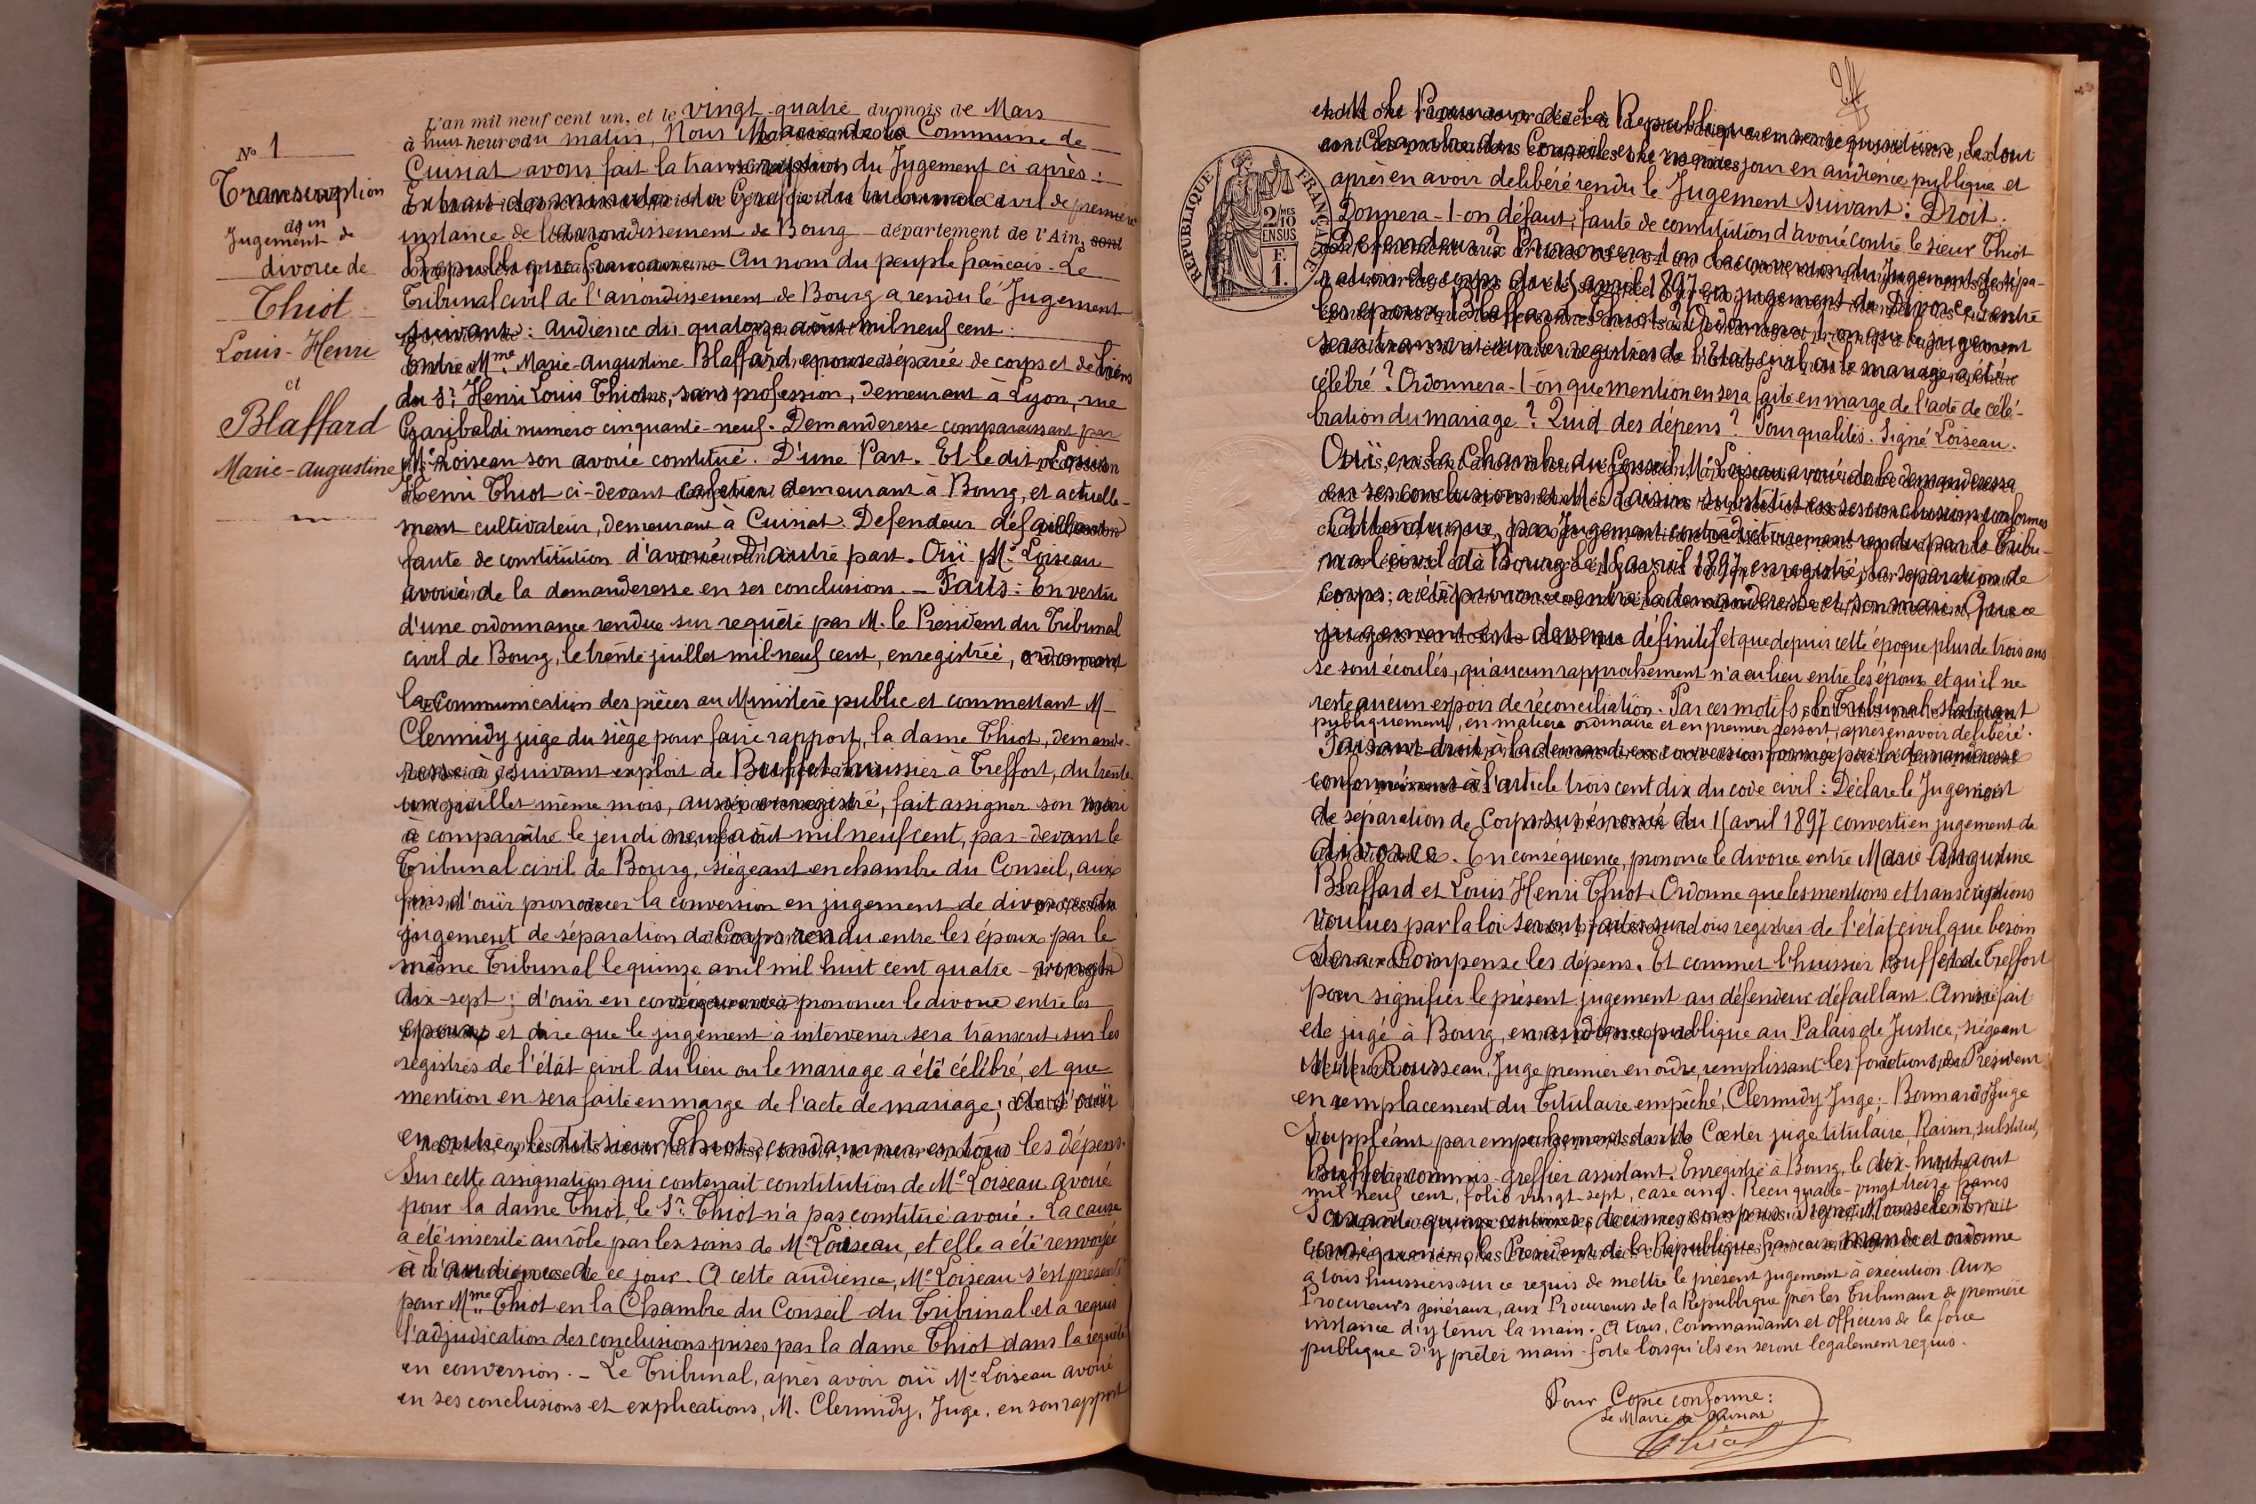 N° 1
Transcription
d'un
Jugement de
divorce de
Thiot
Louis-Henri
et
Blaffard
Marie-augustine
L'an mil neuf cent un, et le vingt-quatre du mois de Mars
à huit heures du matin, Nous Maire de la Commune de
Cuisiat avons fait la transcription du Jugement ci après :
Extrait des minutes du Greffe du tribunal Civil de première
instance de l'arrondissement de Bourg département de l'Ain,
République française – Au nom du peuple français – Le
Tribunal civil de l'arrondissement de Bourg a rendu le Jugement
suivant : audience du quatorze août mil neuf cent.
Entre Mme Marie-Augustine Blaffard épouse séparée de corps et de biens
du Sr Henri Louis Thiot, sans profession, demeurant à Lyon, rue
Garibaldi numero cinquante-neuf. Demanderesse comparaissant par
Me Loiseau son avoué constitué. D'une Part. Et le dit Louis
Henri Thiot ci-devant cafetier demeurant à Bourg, et actuelle-
ment cultivateur, demeurant à Cuisiat. Defendeur défaillant
faute de constitution d'avoué D'autre part. Ouï Me Loiseau
avoué de la demanderesse en ses conclusions. – Faits : En vertu
d'une ordonnance rendue sur requête par M. le Président du Tribunal
civil de Bourg, le trente juillet mil neuf cent, enregistrée, ordonnant
la communication des pièces au Ministère public et commettant M
Clermidy juge du siège pour faire rapport, la dame Thiot, demande-
resse a, suivant exploit de Buffet huissier à Treffort, du trente
un juillet même mois, aussi enregistré, fait assigner son mari
à comparaître le jeudi neuf août mil neuf cent, par-devant le
Tribunal civil de Bourg, siégeant en chambre du Conseil, aux
fins d'ouïr prononcer la conversion en jugement de divorce du
jugement de séparation de Corps rendu entre les époux par le
même Tribunal le quinze avril mil huit cent quatre-vingt
dix-sept ; d'ouïr en conséquence prononcer le divorce entre les
époux et dire que le jugement à intervenir sera transcrit sur les
registres de l'état civil du lieu ou le mariage a été célébré, et que
mention en sera faite en marge de l'acte de mariage ; d'ouïr
en outre, le dit sieur Thiot condamner en tous les dépens.
Sur cette assignation qui contenait constitution de Me Loiseau avoué
pour la dame Thiot, le Sr Thiot n'a pas constitué avoué. La cause
a été inscrite au rôle par les soins de Me Loiseau, et elle a été renvoyée
à l'audience de ce jour. A cette audience, Me Loiseau s'est présenté
pour Mme Thiot en la Chambre du Conseil du Tribunal et a requis
l'adjudication des conclusions prises par la dame Thiot dans la requête
en conversion. – Le Tribunal, après avoir ouï Me Loiseau avoué
en ses conclusions et explications, M. Clermidy, Juge, en son rapport
et M. le Procureur de la République en ses requisitions, le tout
en Chambre du Conseil et le même jour en audience publique et
après en avoir delibéré rendu le Jugement suivant : Droit.
Donnera-t-on défaut, faute de constitution d'avoué contre le sieur Thiot
Defendeur ? Prononcera-t-on la conversion du Jugement de sépa-
ration de corps du 15 avril 1897 en jugement de Divorce entre
les époux Blaffard-Thiot ? Ordonnera-t-on que le jugement
sera transcrit sur les registres de l'état civil où le mariage a été
célébré ? Ordonnera-t-on que mention en sera faite en marge de l'acte de célé-
bration du mariage ? Quid des dépens ? Pour qualités. Signé Loiseau.
Ouï en la Chambre du Conseil Me Loiseau avoué de la demanderesse
en ses conclusions et M. Raisin substitut en ses conclusions conformes
Attendu que, par Jugement contradictoirement rendu par le Tribu-
nal civil de Bourg le 15 avril 1897 enregistré, la separation de
corps, a été prononcée entre la demanderesse et son mari, Que ce
jugement est devenu définitif et que depuis cette époque plus de trois ans
se sont écoulés, qu'aucun rapprochement n'a eu lieu entre les époux et qu'il ne
reste aucun espoir de réconciliation. Par ces motifs, le Tribunal statuant
publiquement, en matière ordinaire et en premier ressort, après en avoir delibéré.
Faisant droit à la demande en conversion formée par la demanderesse
conformément à l'article trois cent dix du code civil : Déclare le Jugement
de séparation de Corps susénoncé du 15 avril 1897 converti en jugement de
divorce. En conséquence, prononce le divorce entre Marie Augustine
Blaffard et Louis Henri Thiot. Ordonne que les mentions et transcriptions
voulues par la loi seront faites sur tous registres de l'état civil que besoin
sera. Compense les dépens. Et commet l'huissier Buffet de Treffort
pour signifier le présent jugement au défendeur défaillant. Ainsi fait
et jugé à Bourg, en audience publique au Palais de Justice, siégeant
M.M. Rousseau, Juge premier en ordre, remplissant les fonctions de Président
en remplacement du Titulaire empêché, Clermidy Juge ; Bonnard Juge
Suppléant par empêchement de Coester juge titulaire, Raisin, substitut,
Buffet commis-greffier assistant. Enregistré à Bourg, le dix-huit août
mil neuf cent, folio vingt-sept, case cinq. Reçu quatre-vingt treize francs
Soixante quinze centimes, décimes compris. Signé
conséquence, le Président de la République française, mande et ordonne
a tous huissiers sur ce requis de mettre le présent jugement à exécution. Aux
Procureurs généraux, aux Procureurs de la République près les Tribunaux de première
instance d'y tenir la main. A tous, Commandants et officiers de la force
publique d'y prêter main-forte lorsqu'ils en seront légalement requis.
Pour Copie conforme :
Le Maire de Cuisiat
Thiot
RÉPUBLIQUE FRANÇAISE
2/10 MES
EN SUS
F.
1.